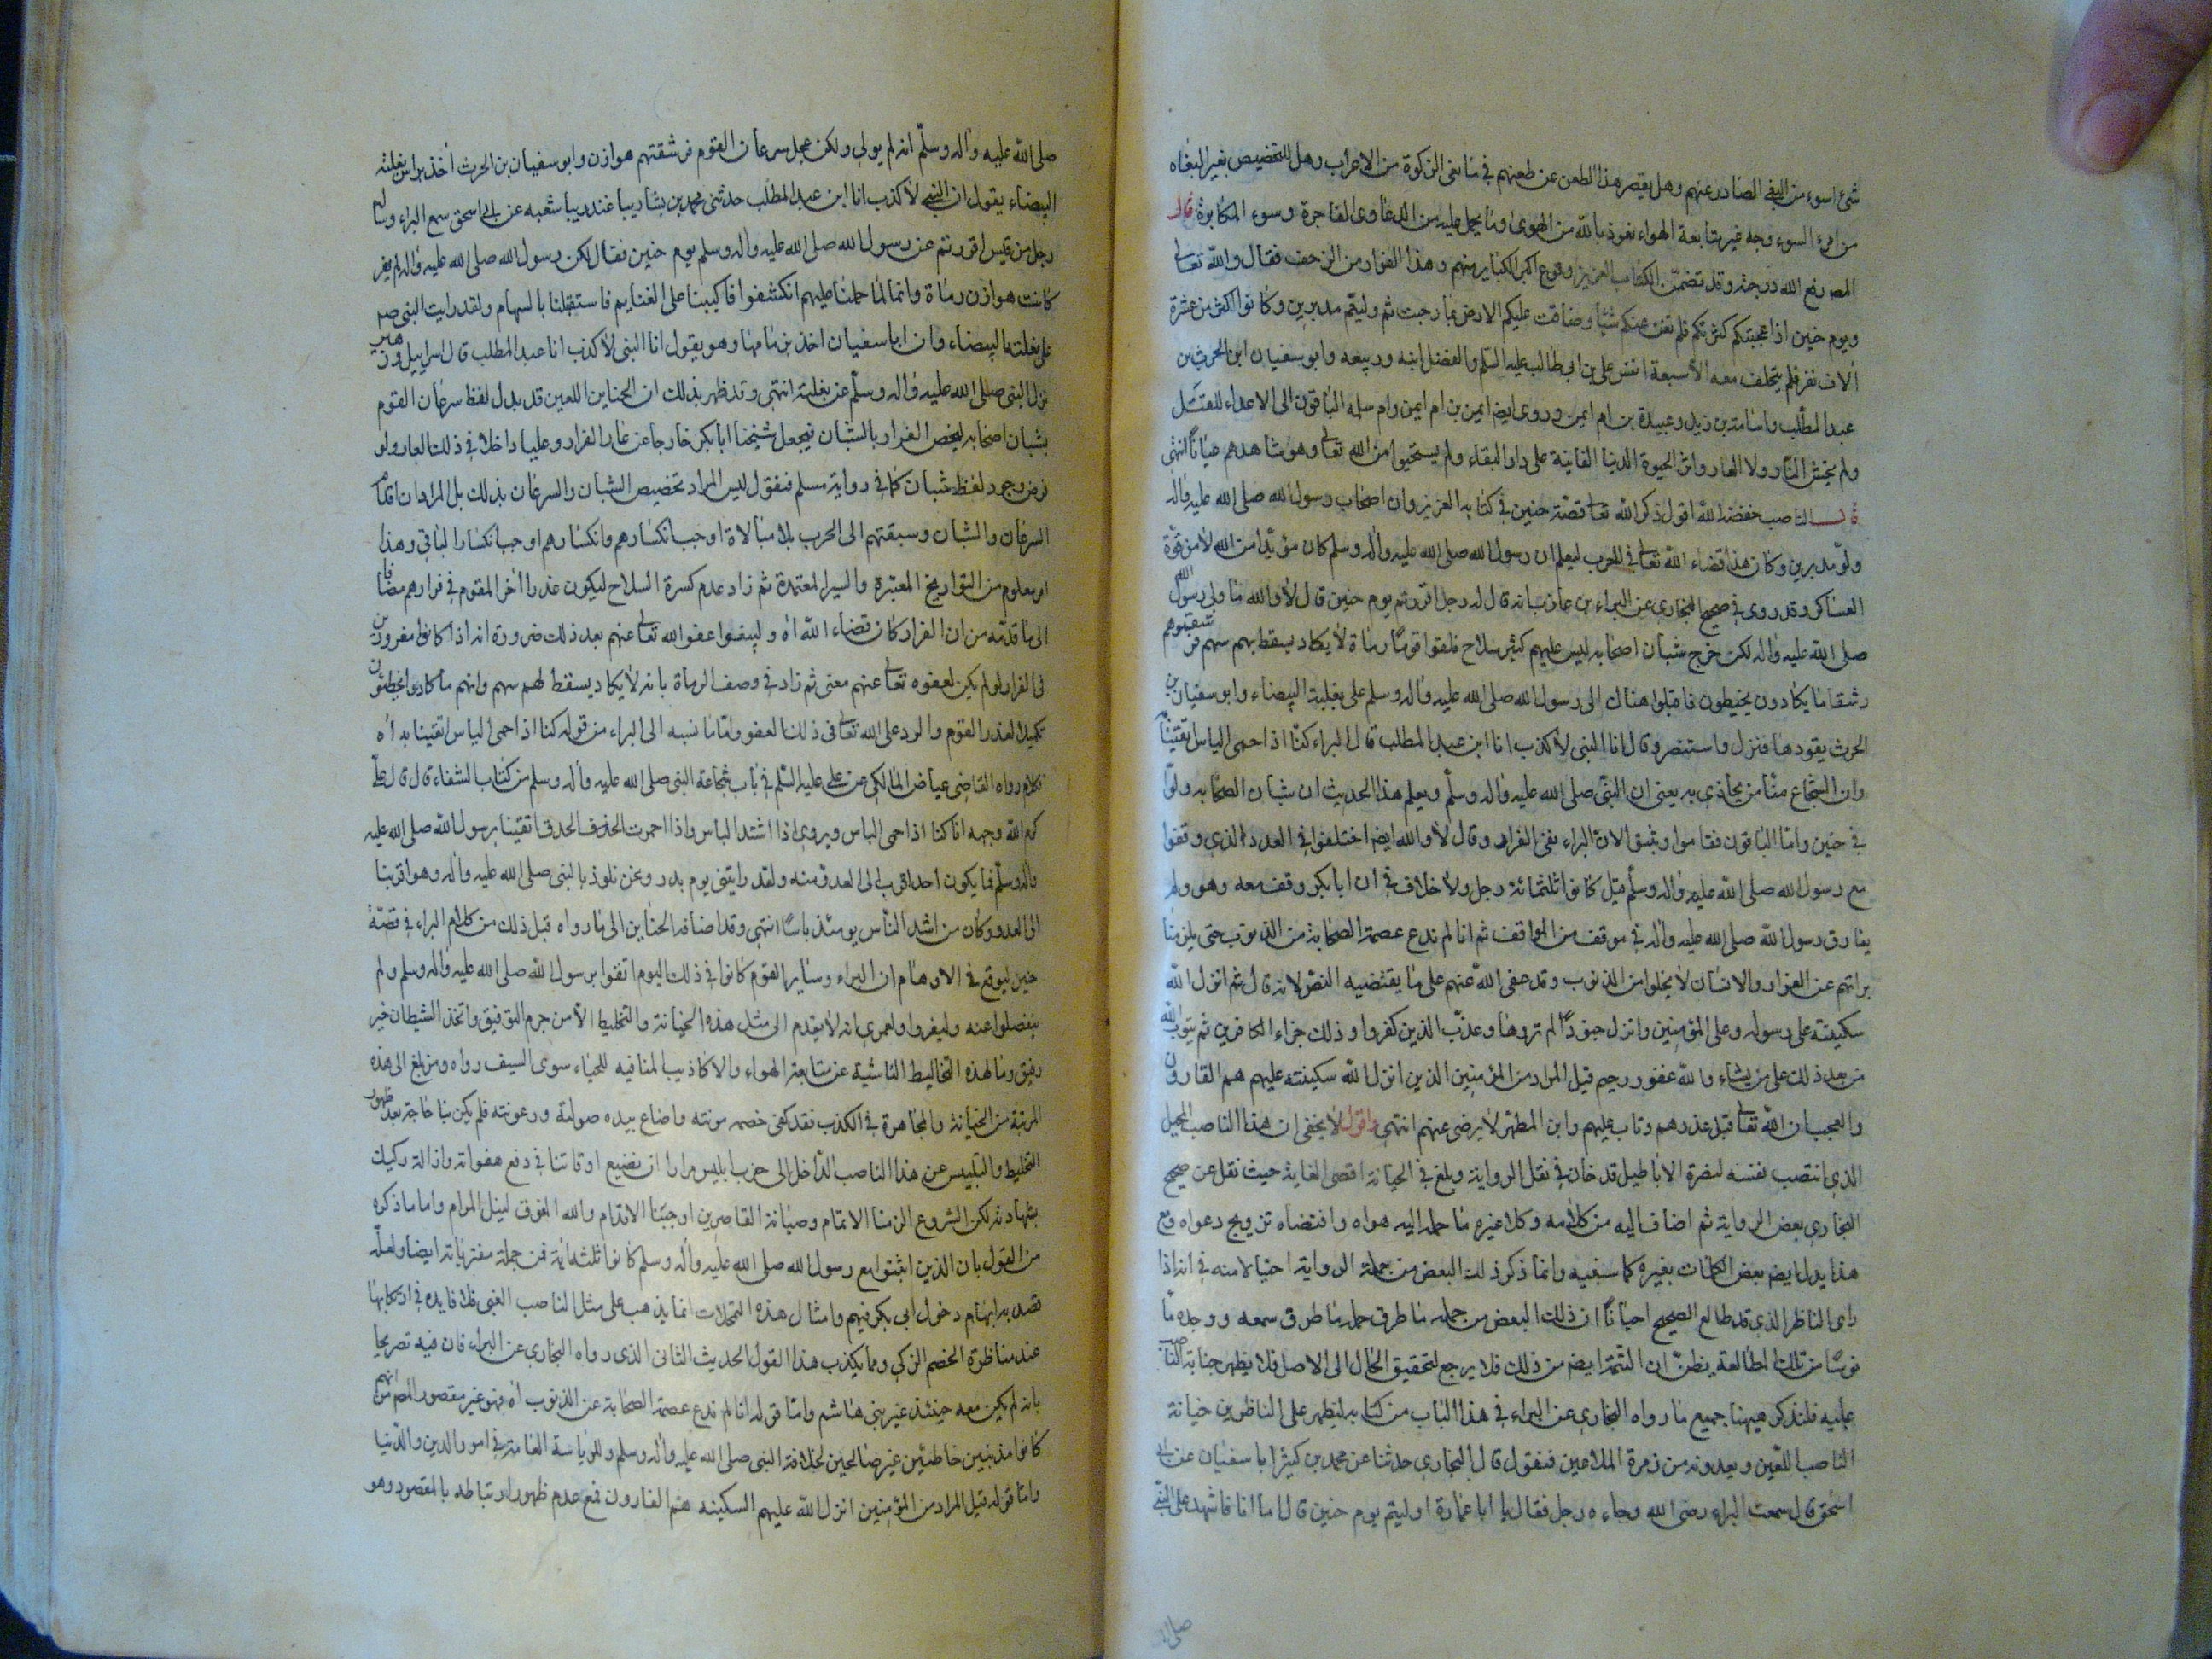 شئ اسوء من البغي الصادر عنهم وهل يقصر هذا الطعن عن طعنهم في مانعي الزكوة من الاعراب وهل للتخصيص بغير البغاه
من امرء السوء وجه غير متابعة الهواء نعوذ بالله من الهوى وما يحمل عليه من الدعاوى الفاجرة وسوء المكابرة قال
المص رفع الله درجته وقد تضمن الكتاب العزيز وقوع اكبر الكباير منهم وهذا الفرار من الزحف فقال والله تعالى
ويوم حنين اذ اعجبتكم كثرتكم فلم تغن عنكم شيئا وضاقت عليكم الارض بما رحبت ثم وليتم مدبرين وكانوا اكثر من عشرة
الاف نفر فلم يتخلف معه الا سبعة انفس علي بن ابي طالب عليه السلم والفضل ابنه وربيعه وابو سفيان ابن الحرث بن
عبد المطلب واسامة بن زيد وعبيدة بن ام ايمن وروى ايض ايمن بن ام ايمن وام سلمه الباقون الى الاعداء للقتل
ولم يخش النار ولا العار واثر الحيوة الدنيا الفانية على دار البقاء ولم يستحيوا من الله تعالى وهو شاهدهم عيانا انتهى
قال الناصب خفضه الله اقول ذكر الله تعالى قصة حنين في كتابه العزيز وان اصحاب رسول الله صلى الله عليه واله
ولو مدبرين وكان هذا قضاء الله تعالى في الحرب ليعلم ان رسول الله صلى الله عليه واله وسلم كان مؤيدا من الله لا من قوة
العساكر وقد روى في صحيح البخاري عن البراء بن عازب انه قال له رجل افررتم يوم حنين قال لا والله ما ولى رسول الله
صلى الله عليه واله لكن خرج شبان اصحابه ليس عليهم كثير سلاح فلقوا قوما رماة لا يكاد يسقط بهم سهم فرشقوهم
رشقا ما يكادون يخيطون فاقبلوا هناك الى رسول الله صلى الله عليه واله وسلم على بغلته البيضاء وابو سفيان بن
الحرث يقودها فنزل واستنصر وقال انا النبي لا كذب انا ابن عبد المطلب قال البراء كنا اذا احمى الباس اتقينا
وان الشجاع منا من يحاذي به يعني ان النبي صلى الله عليه واله وسلم ويعلم هذا الحديث ان شبان الصحابه ولوا
في حنين واما الباقون فقاموا وثبتوا لان البراء نفى الفرار وقال لا والله ايض اختلفوا في العدد الذي وقفوا
مع رسول الله صلى الله عليه واله وسلم قيل كانوا ثلثمائة رجل ولا خلاف في ان ابا بكر وقف معه وهو ولم
يفارق رسول الله صلى الله عليه واله في موقف من المواقف ثم انا لم ندع عصمة الصحابة من الذنوب حتى يلزمنا
براتهم عن الفرار والانسان لا يخلوا من الذنوب وقد عفى الله عنهم على ما يقتضيه النص لانه قال ثم انزل الله
سكينته على رسوله وعلى المؤمنين وانزل جنودا لم تروها وعذب الذين كفروا وذلك جزاء الكافرين ثم يتوب الله
من بعد ذلك على من يشاء والله غفور رحيم قيل المراد من المؤمنين الذين انزل الله سكينته عليهم هم الفارون
والعجب ان الله تعالى قبل عذرهم وتاب عليهم وابن المطهر لا يرضى عنهم انتهى واقول لا يخفى ان هذا الناصب المحيل
الذي انتصب نفسه لنصرة الاباطيل قد خان في نقل الرواية وبلغ في الخيانة اقصى الغاية حيث نقل عن صحيح
البخاري بعض الرواية ثم اضاف اليه من كلامه وكلام غيره ما حمله اليه هواه واقتضاه ترويج دعواه ومع
هذا يدل ايض بعض الكلمات بغيره كما سنبينه وانما ذكر ذلك البعض من جملة الرواية احتيالا منه في انه اذا
راى الناظر الذي قد طالع الصحيح احيانا ان ذلك البعض من جمله ما طرق حمل ما طرق سمعه ووجده ما
نوسا من تلك المطالعة يظن ان التتمة ايض من ذلك فلا يرجع لتحقيق الحال الى الاصل فلا يظهر جناية الناصب
عليه فلنذكر هيهنا جميع ما رواه البخاري عن البراء في هذا الباب من كتابه ليظهر على الناظرين خيانة
الناصب اللعين ويعدونه من زمرة الملاعين فنقول قال البخاري حدثنا عن محمد بن كثير ابا سفيان عن ابى
اسحق قال سمعت البراء رضى الله وجاءه رجل فقال يا ابا عمارة اوليتم يوم حنين قال ما انا فاشهد على النبي
صلى الله
صلى الله عليه واله وسلم انه لم يولي ولكن عجل سرعان القوم فرشقتهم هوازن وابو سفيان بن الحرث اخذ براس بغلته
البيضاء يقول ان النبي لا كذب انا ابن عبد المطلب حدثنى محمد بن بشار يبا غندر يبا شعبه عن ابى اسحق سمع البراء وساله
رجل من قيس افررتم عن رسول الله صلى الله عليه واله وسلم يوم حنين فقال لكن رسول الله صلى الله عليه واله لم يفر
كانت هوازن رماة وانما لما حملنا عليهم انكشفوا فاكببنا على الغنايم فاستقبلنا بالسهام ولقد رايت النبي صم
على بغلته البيضاء وان ابا سفيان اخذ بزمامها وهو يقول انا النبي لا كذب انا عبد المطلب قال اسراييل وزهير
نزل النبي صلى الله عليه واله وسلم عن بغلته انتهى وقد ظهر بذلك ان الخاين اللعين قد بدل لفظ سرعان القوم
بشبان اصحابه ليخص الفرار بالشبان فيجعل شيخنا ابا بكر خارجا عن عار الفرار وعليا داخلا في ذلك العار ولو
فرض وجود لفظ شبان كما في رواية مسلم فنقول ليس المراد تخصيص الشبان والسرعان بذلك بل المراد ان اقدام
السرعان والشبان وسبقتهم الى الحرب بلا مبالاة اوجب انكسارهم وانكسارهم اوجب انكسار الباقي وهذا
امر معلوم من التواريخ المعتبره والسير المعتمدة ثم زاد عدم كسرة السلاح ليكون عذرا اخر للقوم في فرارهم مضافا
الى ما قدمه من ان الفرار كان قضاء الله اه وليبقوا عفو الله تعالى عنهم بعد ذلك ضرورة انه اذا كانوا معذورين
في الفرار لو لم يكن لعفوه تعالى عنهم معنى ثم زاد في وصف الرماة بانه لا يكاد يسقط لهم سهم وانهم ما كادوا يخطئون
تكميلا لعذر القوم والرد على الله تعالى في ذلك العفو واما ما نسبه الى البراء من قوله كنا اذا احمى الباس اتقينا به اه
كلام رواه القاضي عياض المالكي عن علي عليه السلم في باب شجاعة النبي صلى الله عليه واله وسلم من كتاب الشفاء قال قال على
كرم الله وجهه انا كنا اذا حمى الباس ويروى اذا اشتد الباس واذا احمرت الحدق اتقينا برسول الله صلى الله عليه
واله وسلم فما يكون احد اقرب الى العدو منه ولقد رايتني يوم بدر ونحن نلوذ بالنبي صلى الله عليه واله وهو اقربنا
الى العدو وكان من اشد الناس يومئذ باسا انتهى وقد اضافه الخاين الى ما رواه قبل ذلك من كلام البراء في قصة
حنين ليوقع في الاوهام ان البراء وساير القوم كانوا في ذلك اليوم اتقوا برسول الله صلى الله عليه واله وسلم ولم
ينفصلوا عنه وليفروا ولعمري انه لا يقدم الى مثل هذه الخيانة والتخليط الا من حرم التوفيق واتخذ الشيطان خير
رفيق وما لهذه التخاليط الناشية عن متابعة الهواء والاكاذيب المنافيه للحياء سوى السيف رواه ومن بلغ الى هذه
المرتبة من الخيانة والمجاهرة في الكذب فقد كفى خصمه مونته واضاع بيده صولته ورعونته فلم يكن بنا حاجة بعد ظهور
التخليط والتلبيس عن هذا الناصب الداخل الى حزب ابليس مرارا ان نضيع اوقاتنا في دفع هفواته وازالة ركيك
شهادته لكن الشروع الزمنا الاتمام وصيانة القاصرين اوجبنا الاقدام والله الموفق لنيل المرام واما ما ذكره
من القول بان الذين اثبتوا مع رسول الله صلى الله عليه واله وسلم كانوا ثلثماية فمن جملة مفترياته ايضا ولعله
قصد به ابهام دخول ابي بكر فيهم وامثال هذه التمحلات انما يذهب على مثل الناصب الغبي فلا فايده في ارتكابها
عند مناظرة الخصم الزكي ومما يكذب هذا القول الحديث الثاني الذي رواه البخاري عن البراء فان فيه تصريحا
بانه لم يكن معه حينئذ غير بني هاشم واما قوله انا لم ندع عصمة الصحابة عن الذنوب اه فهو غير مقصور المص من انهم
كانوا مذنبين خاطئين غير صالحين لخلافة النبي صلى الله عليه واله وسلم وللرياسة العامة في امور الدين والدنيا
واما قوله قيل المراد من المؤمنين انزل الله عليهم السكينه هم الفارون فمع عدم ظهور ارتباطه بالمقصود وهو